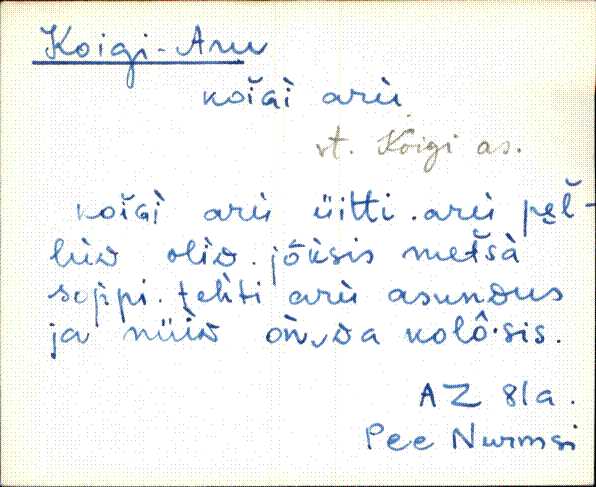 Koigi-Aru
koĭɢì arù
vt. Koigi as.
koĭɢì arù üitti. arù pè̮l̆-
lùᴅ olìᴅ. jõùsis metšà
soppi. tehti arù asunᴅus
ja nüìᴅ òn, ᴅa kolô·sis.
AZ 81a.
Pee Nurmsi